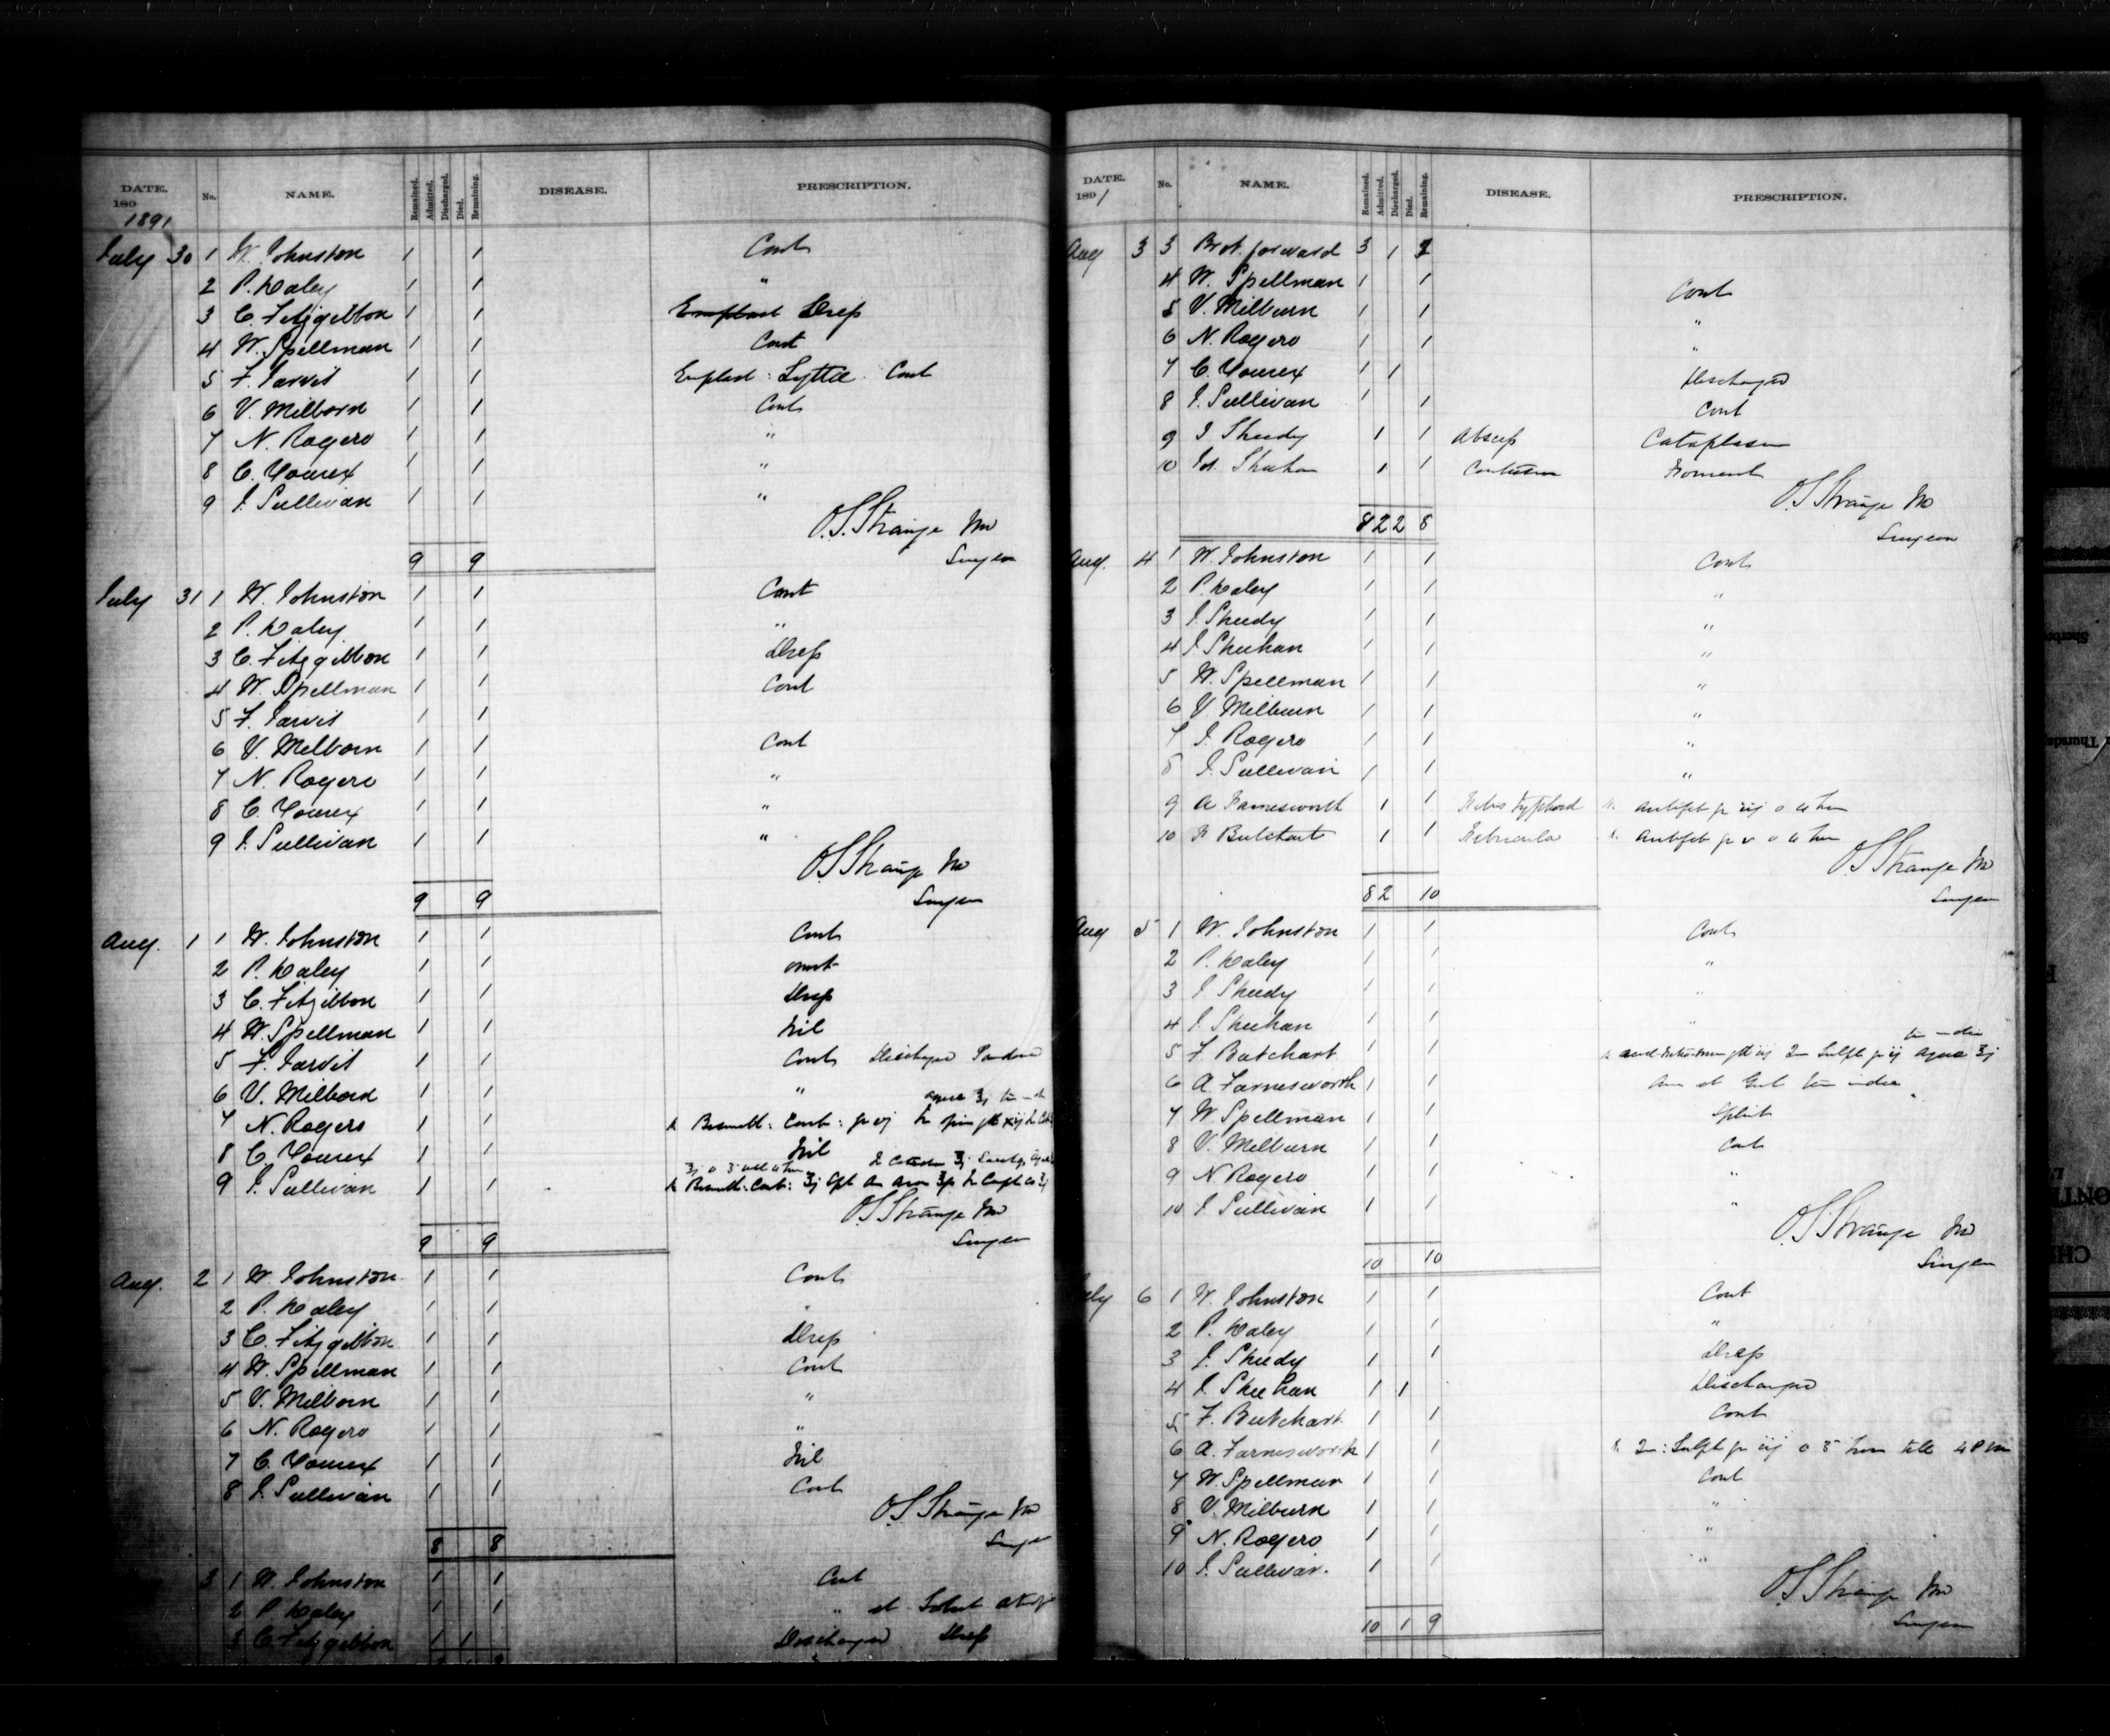 DATE. 189 No. NAME. Remained. Admitted. Discharged. Died. Remaining. DISEASE. PRESCRIPTION.
1891
July 30 1 W. Johnston 1 1 Cont
2 P. Haley 1 1 "
3 C. Fitzgibbon 1 1 Emplast Drep
4 W. Spellman 1 1 Cont
5 F. Jarvis 1 1 Emplast: Lyttae Cont
6 V. Milborn 1 1 Cont
7 N. Rogers 1 1 "
8 C. Yourex 1 1 "
9 J. Sullivan 1 1 "
O.S. Strange MD
Surgeon
9 9
July 31 1 W. Johnston 1 1 Cont
2 P. Haley 1 1 "
3 C. Fitzgibbon 1 1 Drep
4 W. Spellman 1 1 Cont
5 F. Jarvis 1 1
6 V. Milborn 1 1 Cont
7 N. Rogers 1 1 "
8 C. Yourex 1 1 "
9 J. Sullivan 1 1 "
O.S. Strange MD
Surgeon
9 9
Aug. 1 1 W. Johnston 1 1 Cont
2 P. Haley 1 1
3 C. Fitzgibbon 1 1 Drep
4 W. Spellman 1 1 Nil
5 F. Jarvis 1 1 Cont Discharged
6 V. Milborn 1 1 "
aqua ℥j
7 N. Rogers 1 1 Bismuth: Carb: gr vj
8 C. Yourex 1 1 Nil
9 J. Sullivan 1 1 Bismuth: Carb: ʒj
O.S. Strange MD
Surgeon
9 9
Aug. 2 1 W. Johnston 1 1 Cont
2 P. Haley 1 1 "
3 C. Fitzgibbon 1 1 Drep
4 W. Spellman 1 1 Cont
5 V. Milborn 1 1 "
6 N. Rogers 1 1 "
7 C. Yourex 1 1 Nil
8 J. Sullivan 1 1 Cont
O.S. Strange MD
Surgeon
8 8
3 1 W. Johnston 1 1 Cont
2 P. Haley 1 1 "
3 C. Fitzgibbon 1 1 Discharged Drep
DATE. 1891 No. NAME. Remained. Admitted. Discharged. Died. Remaining. DISEASE. PRESCRIPTION.
Aug 3 3 Brot. forward 3 1 2
4 W. Spellman 1 1 Cont
5 V. Milburn 1 1 "
6 N. Rogers 1 1 "
7 C. Yourex 1 1 Discharged
8 J. Sullivan 1 1 Cont
9 J Sheedy 1 1 Abscess Cataplasm
10 Sheehan 1 1 Contusion Foment
O.S. Strange MD
Surgeon
8 2 2 8
Aug. 4 1 W. Johnston 1 1 Cont
2 P. Haley 1 1 "
3 J. Sheedy 1 1 "
4 J Sheehan 1 1 "
5 W. Spellman 1 1 "
6 V. Milburn 1 1 "
7 J. Rogers 1 1 "
8 J. Sullivan 1 1 "
9 A Farnesworth 1 1 Febris Typhoid Antifeb gr iij
10 F Butchart 1 1 Febricula Antifeb gr v
O.S. Strange MD
Surgeon
8 2 10
Aug 5 1 W. Johnston 1 1 Cont
2 P. Haley 1 1 "
3 J. Sheedy 1 1 "
4 J. Sheehan 1 1 "
5 F. Butchart 1 1 Sulph gr ij aqua ℥j
6 A. Farnesworth 1 1
7 W. Spellman 1 1 Splint
8 V. Milburn 1 1 Cont
9 N. Rogers 1 1 "
10 J. Sullivan 1 1 "
O.S. Strange MD
Surgeon
10 10
July 6 1 W. Johnston 1 1 Cont
2 P. Haley 1 1 "
3 J. Sheedy 1 1 Drep
4 J. Sheehan 1 1 Discharged
5 F. Butchart 1 1 Cont
6 A. Farnesworth 1 1 Sulph gr iij till 4 P M
7 W. Spellman 1 1 Cont
8 V. Milburn 1 1 "
9 N. Rogers 1 1 "
10 J. Sullivan. 1 1 "
O.S. Strange MD
Surgeon
10 1 9